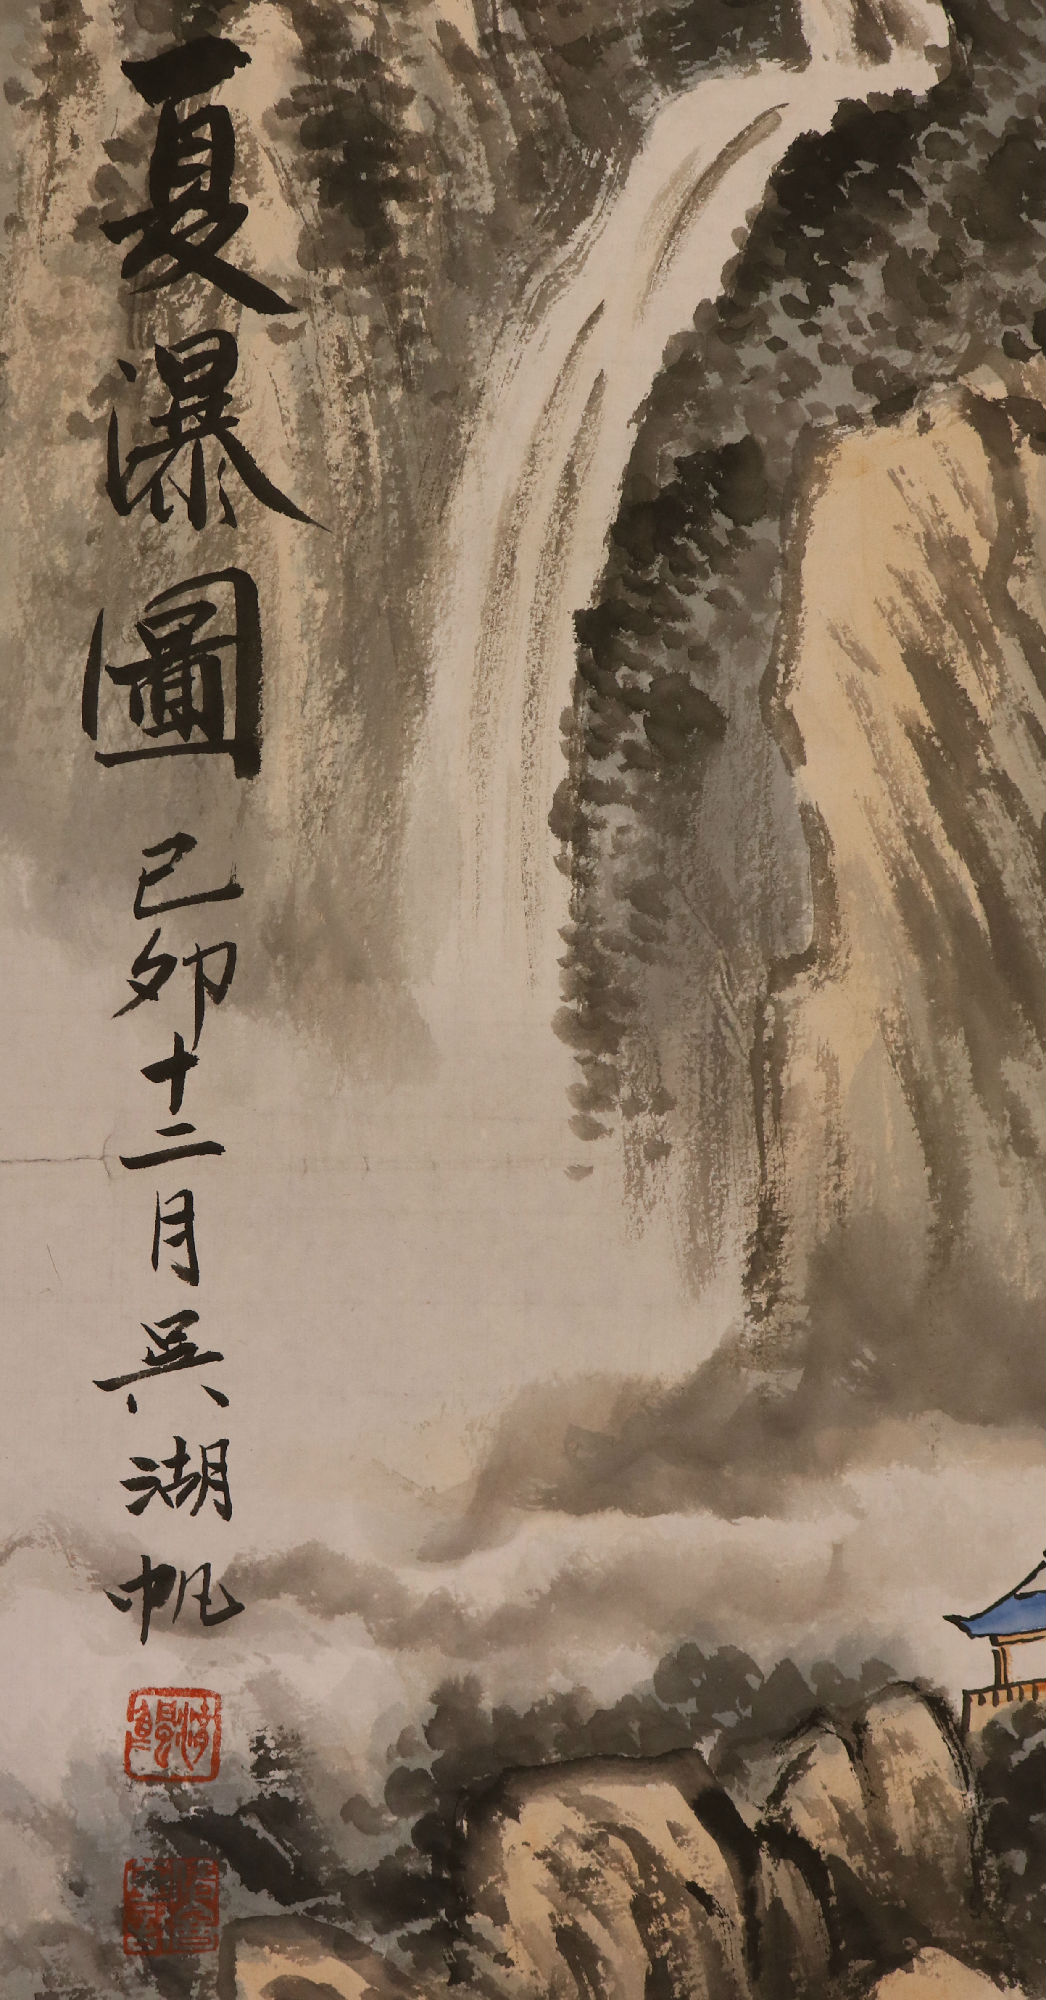 夏瀑圖 己卯十二月吳湖帆